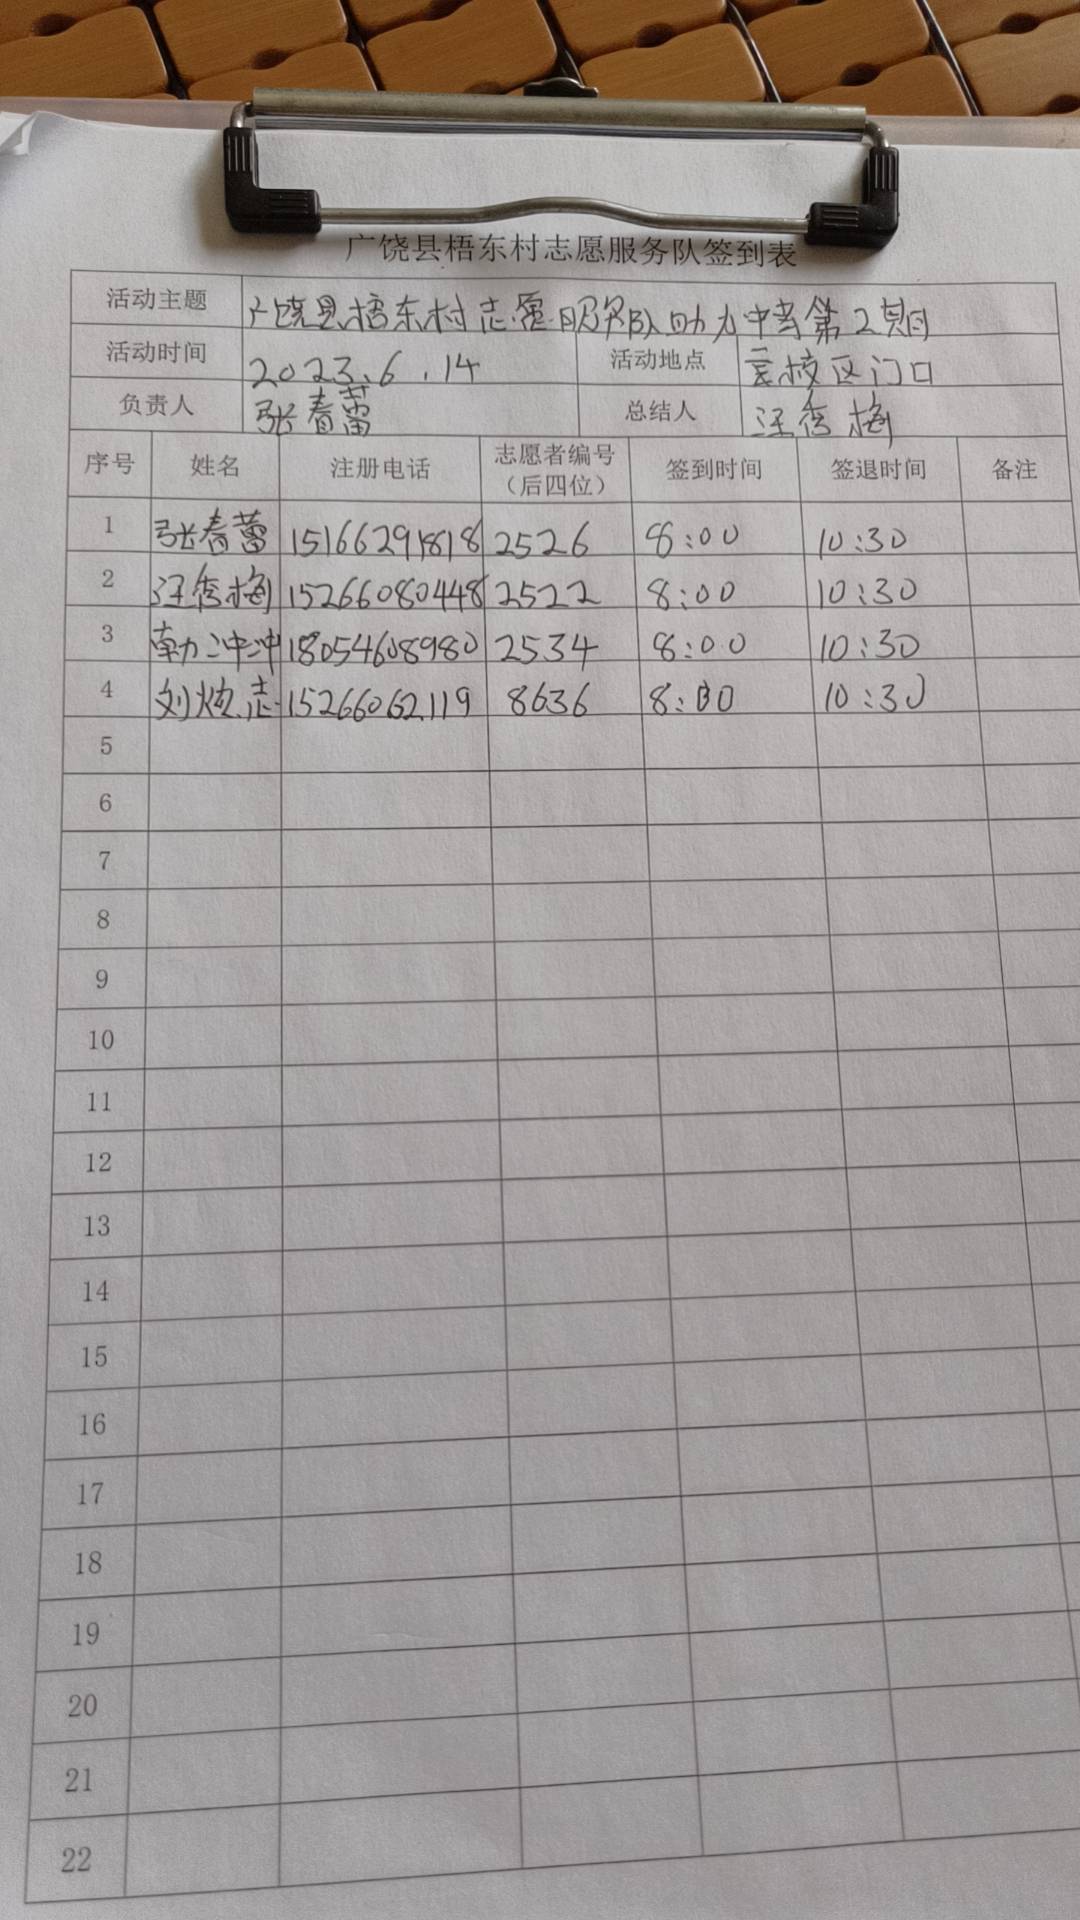 广饶县梧东村志愿服务队签到表
活动主题 广饶县梧东村志愿服务队助力中考第2期
活动时间 2023.6.14 活动地点 校区门口
负责人 张春蕾 总结人 汪秀梅
序号 姓名 注册电话 志愿者编号（后四位） 签到时间 签退时间 备注
1 张春蕾 15166291818 2526 8:00 10:30
2 汪秀梅 15266080448 2522 8:00 10:30
3 冲冲 18054608980 2534 8:00 10:30
4 刘 志 15266062119 8636 8:00 10:30
5
6
7
8
9
10
11
12
13
14
15
16
17
18
19
20
21
22